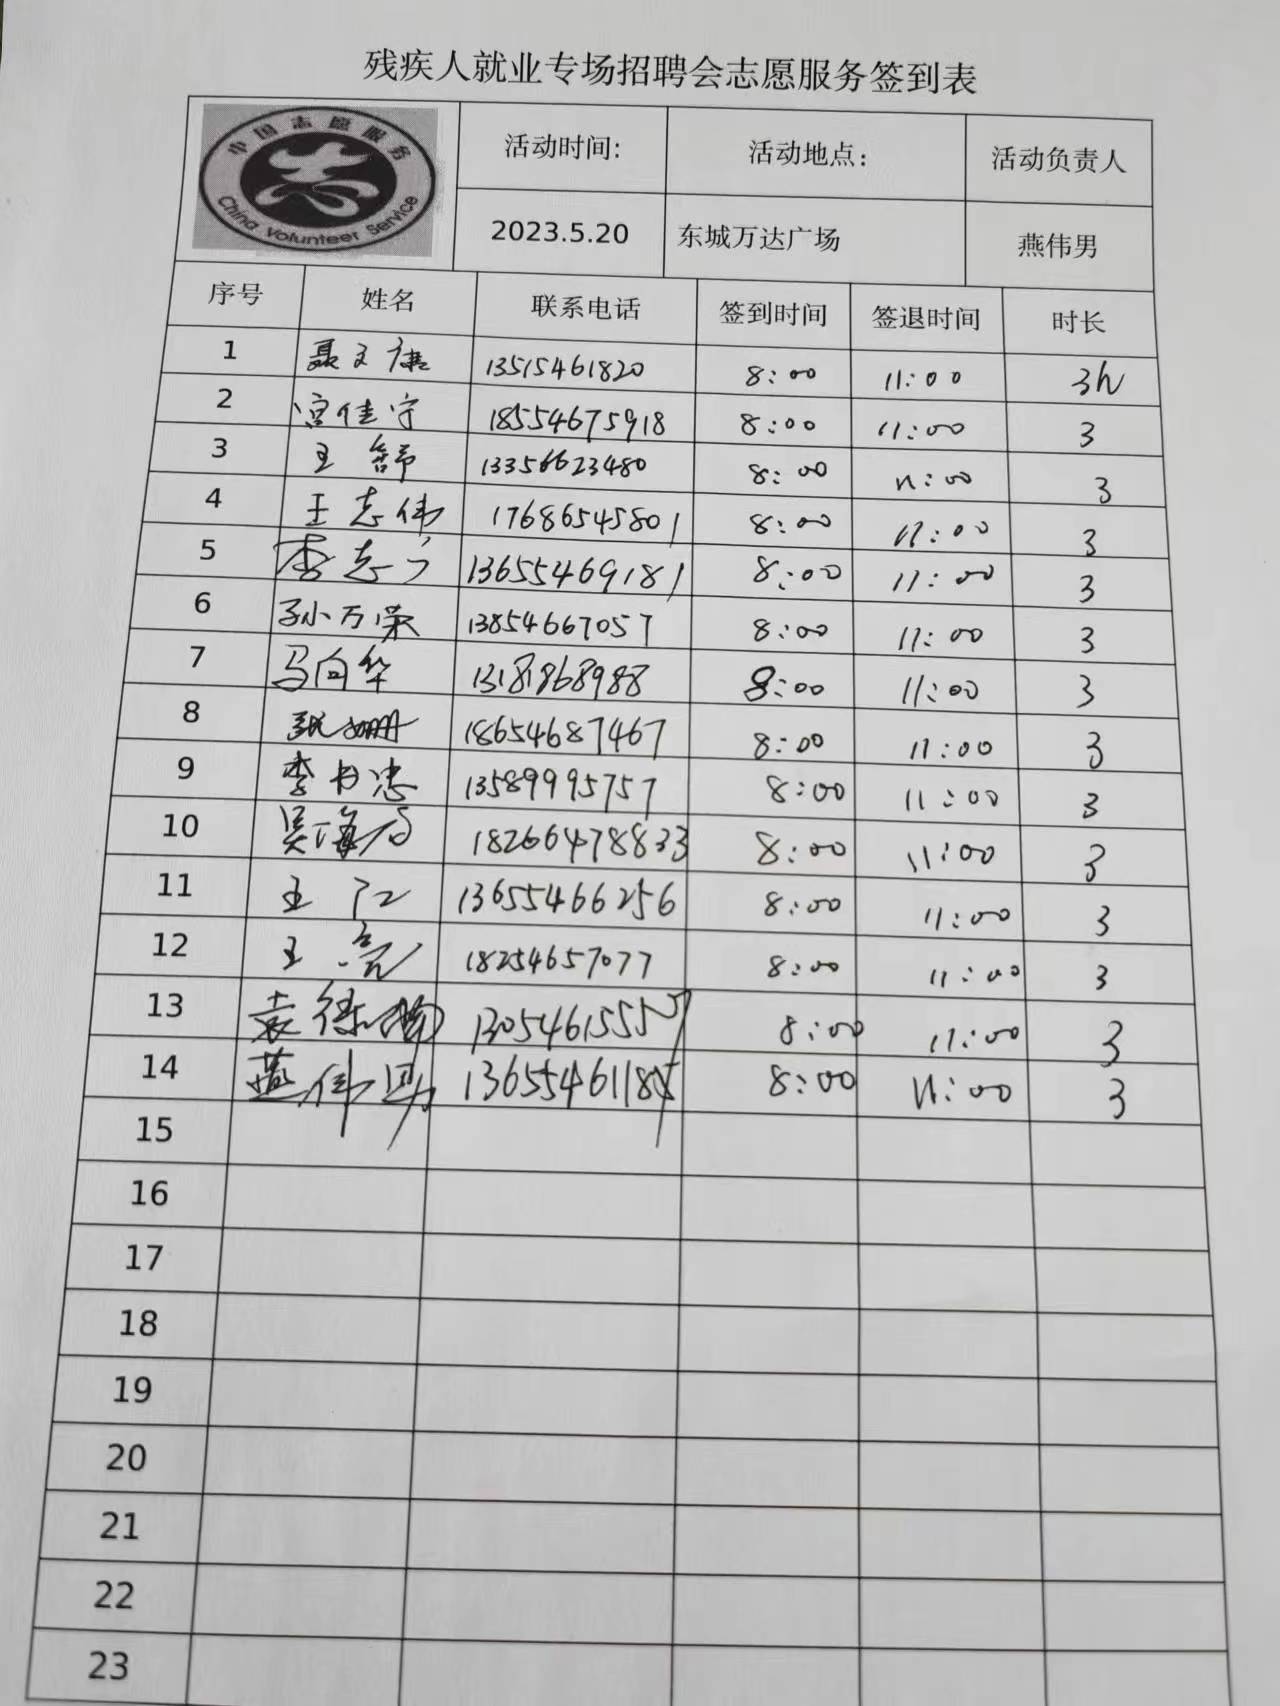 残疾人就业专场招聘会志愿服务签到表
中国志愿服务
China Volunteer Service
活动时间: 活动地点: 活动负责人
2023.5.20 东城万达广场 燕伟男
序号 姓名 联系电话 签到时间 签退时间 时长
1 聂文康 13515461820 8:00 11:00 3h
2 宫佳宁 18554675918 8:00 11:00 3
3 王舒 13356623480 8:00 11:00 3
4 王志伟 17686545801 8:00 11:00 3
5 李志 13655469181 8:00 11:00 3
6 孙万荣 13854667057 8:00 11:00 3
7 马向华 13181868988 8:00 11:00 3
8 张姗 18654687467 8:00 11:00 3
9 李书忠 13589995757 8:00 11:00 3
10 吴海 18266478833 8:00 11:00 3
11 王江 13655466256 8:00 11:00 3
12 王亮 18254657077 8:00 11:00 3
13 袁德 13054615557 8:00 11:00 3
14 燕伟男 13655461185 8:00 11:00 3
15
16
17
18
19
20
21
22
23